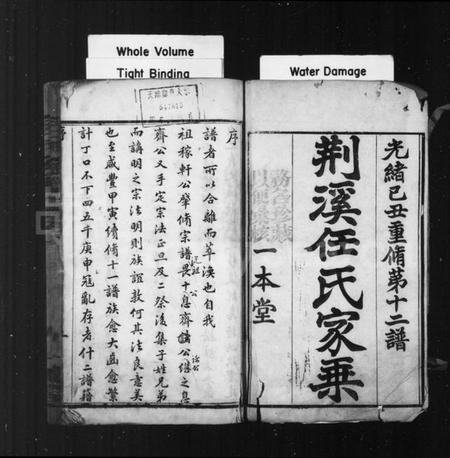 Whole Volume
Tight Binding
Water Damage
光緒己丑重脩第十二譜
荆溪任氏家乗
一本堂
序
譜者所以合離而萃渙也自我
祖稼軒公肇脩宗譜畏十息齋鏞公継之息
齊公又手定宗法正旦及二祭後集子姓兄弟
而講明之宗法明則族誼敦何其法良意美
也至咸豐甲寅續脩十一譜族愈大齒愈繁
計丁口不下四五千庚申冦亂存者什二譜籍